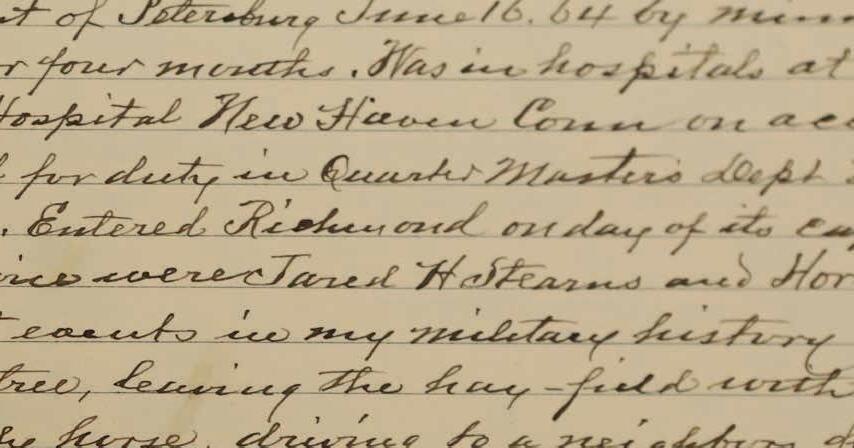 of Petersburg June 16. 64 by
four months. Was in hospitals at
Hospital New Haven Conn on
for duty in Quarter Masters Dept
. Entered Richmond on day of its
were Jared H Stearns and Hor
events in my military history
tree, leaving the hay-field with
horse, driving to a neighbor